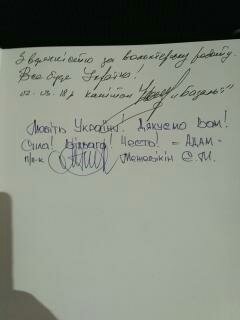 З вдячністю за волонтерську роботу.
Все буде Україна!
02.03.18 р. капітан "Базальт"
Любіть Україну! Дякуємо Вам!
Сила! Відвага! Честь! = АДАМ =
п/п-к Є. М.